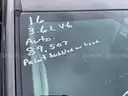 16
3.6L V6
Auto.
89,507
Paint bubbled on hood.